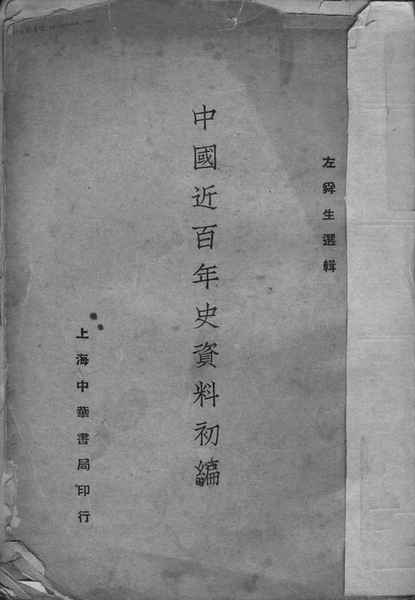 左舜生選輯
中國近百年史資料初編
上海中華書局印行